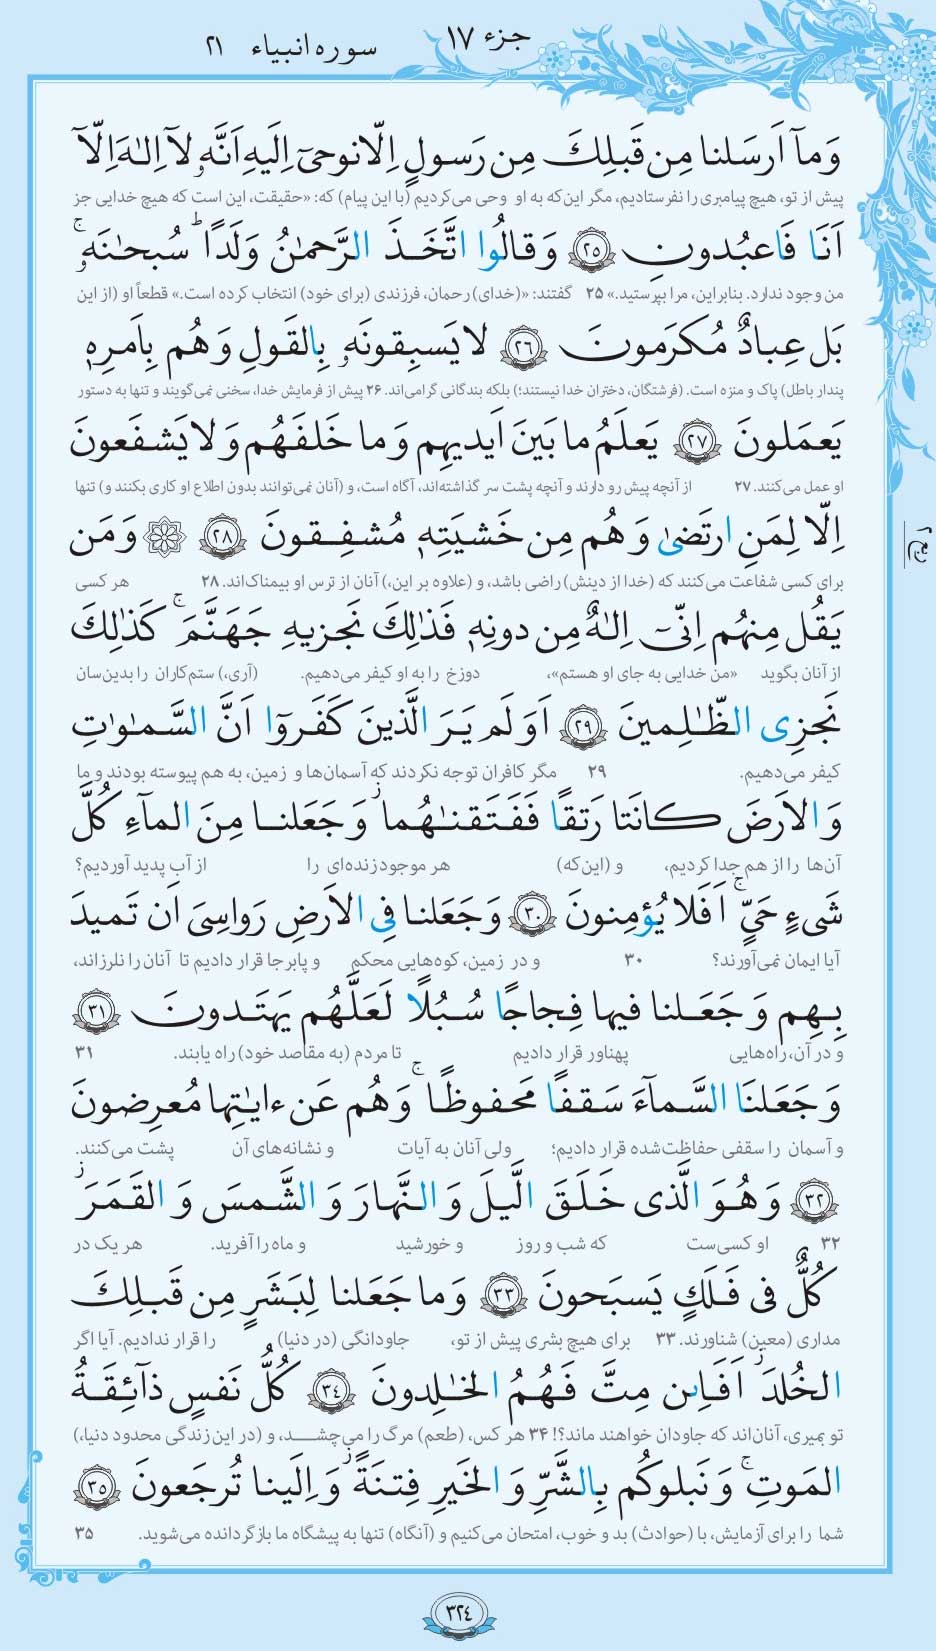 جزء ۱۷
سوره انبیاء ۲۱
وَمآ اَرسَلنا مِن قَبلِكَ مِن رَسولٍ اِلّا نوحیٓ اِلَیهِ اَنَّهٗ لآ اِلٰهَ اِلّآ
پیش از تو، هیچ پیامبری را نفرستادیم، مگر این‌که به او وحی می‌کردیم (با این پیام) که: «حقیقت، این است که هیچ خدایی جز
اَنَا فَاعبُدونِ ﴿۲۵﴾ وَ قالُوا اتَّخَذَ الرَّحمٰنُ وَلَدًا ؕ سُبحٰنَهٗ ۚ
من وجود ندارد. بنابراین، مرا بپرستید.» ۲۵ گفتند: «(خدای) رحمان، فرزندی (برای خود) انتخاب کرده است.» قطعاً او (از این
بَل عِبادٌ مُكرَمونَ ﴿۲۶﴾ لا یَسبِقونَهٗ بِالقَولِ وَ هُم بِاَمرِهٖ
پندار باطل) پاک و منزه است. (فرشتگان، دختران خدا نیستند؛) بلکه بندگانی گرامی‌اند. ۲۶ پیش از فرمایش خدا، سخنی نمی‌گویند و تنها به دستور
یَعمَلونَ ﴿۲۷﴾ یَعلَمُ ما بَینَ اَیدیهِم وَ ما خَلفَهُم وَ لا یَشفَعونَ
او عمل می‌کنند. ۲۷ از آنچه پیش رو دارند و آنچه پشت سر گذاشته‌اند، آگاه است، و (آنان نمی‌توانند بدون اطلاع او کاری بکنند و) تنها
اِلّا لِمَنِ ارتَضیٰ وَ هُم مِن خَشیَتِهٖ مُشفِقونَ ﴿۲۸﴾ ۞ وَ مَن
برای کسی شفاعت می‌کنند که (خدا از دینش) راضی باشد، و (علاوه بر این،) آنان از ترس او بیمناک‌اند. ۲۸ هر کسی
یَقُل مِنهُم اِنّیٓ اِلٰهٌ مِن دونِهٖ فَذٰلِكَ نَجزیهِ جَهَنَّمَ ۚ كَذٰلِكَ
از آنان بگوید «من خدایی به جای او هستم»، دوزخ را به او کیفر می‌دهیم. (آری،) ستم‌کاران را بدین‌سان
نَجزِی الظّٰلِمینَ ﴿۲۹﴾ اَوَ لَم یَرَ الَّذینَ كَفَروٓا اَنَّ السَّمٰوٰتِ
کیفر می‌دهیم. ۲۹ مگر کافران توجه نکردند که آسمان‌ها و زمین، به هم پیوسته بودند و ما
وَ الاَرضَ كانَتا رَتقًا فَفَتَقنٰهُما ۖ وَ جَعَلنا مِنَ المآءِ كُلَّ
آن‌ها را از هم جدا کردیم، و (این‌که) هر موجود زنده‌ای را از آب پدید آوردیم؟
شَیءٍ حَیٍّ ۚ اَفَلا یُؤمِنونَ ﴿۳۰﴾ وَ جَعَلنا فِی الاَرضِ رَواسِیَ اَن تَمیدَ
آیا ایمان نمی‌آورند؟ ۳۰ و در زمین، کوه‌هایی محکم و پابرجا قرار دادیم تا آنان را نلرزاند،
بِهِم وَ جَعَلنا فیها فِجاجًا سُبُلًا لَعَلَّهُم یَهتَدونَ ﴿۳۱﴾
و در آن، راه‌هایی پهناور قرار دادیم تا مردم (به مقاصد خود) راه یابند. ۳۱
وَ جَعَلنَا السَّمآءَ سَقفًا مَحفوظًا ۚ وَ هُم عَن ءایٰتِها مُعرِضونَ
و آسمان را سقفی حفاظت‌شده قرار دادیم؛ ولی آنان به آیات و نشانه‌های آن پشت می‌کنند.
﴿۳۲﴾ وَ هُوَ الَّذی خَلَقَ الَّیلَ وَ النَّهارَ وَ الشَّمسَ وَ القَمَرَ ۖ
۳۲ او کسی‌ست که شب و روز و خورشید و ماه را آفرید. هر یک در
كُلٌّ فی فَلَكٍ یَسبَحونَ ﴿۳۳﴾ وَ ما جَعَلنا لِبَشَرٍ مِن قَبلِكَ
مداری (معین) شناورند. ۳۳ برای هیچ بشری پیش از تو، جاودانگی (در دنیا) را قرار ندادیم. آیا اگر
الخُلدَ ۖ اَفَا۟ئِن مِتَّ فَهُمُ الخٰلِدونَ ﴿۳۴﴾ كُلُّ نَفسٍ ذآئِقَةُ
تو بمیری، آنان‌اند که جاودان خواهند ماند؟! ۳۴ هر کس، (طعم) مرگ را می‌چشد، و (در این زندگی محدود دنیا،)
المَوتِ ۚ وَ نَبلوكُم بِالشَّرِّ وَ الخَیرِ فِتنَةً ۖ وَ اِلَینا تُرجَعونَ ﴿۳۵﴾
شما را برای آزمایش، با (حوادث) بد و خوب، امتحان می‌کنیم و (آنگاه) تنها به پیشگاه ما بازگردانده می‌شوید. ۳۵
۳۲۴